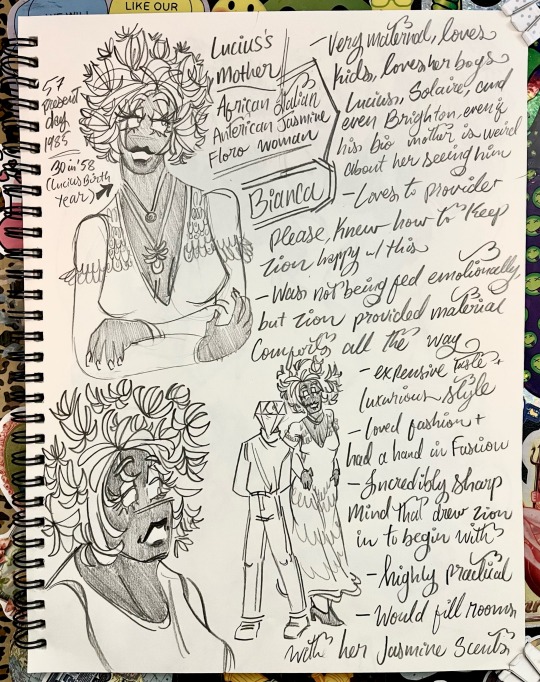 LIKE OUR
Lucius's
Mother
African Italian
American Jasmine
Floro woman
Bianca
57
present
day
1985
30 in '58
(Lucius Birth
Year)
- Very maternal, loves
kids, loves her boys
Lucius, Solaire, and
even Brighton, even if
his bio mother is weird
about her seeing him
- Loves to provider
please, knew how to keep
Zion happy w/ this
- Was not being fed emotionally
but Zion provided material
Comforts all the way
- expensive taste +
luxurious style
- loved fashion +
had a hand in Fusion
- Incredibly sharp
Mind that drew Zion
in to begin with
- highly practical
- Would fill rooms
with her Jasmine Scents